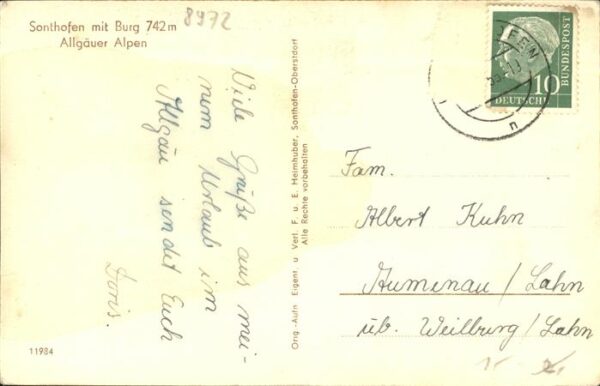 Sonthofen mit Burg 742 m
Allgäuer Alpen
8972
Viele Grüße aus mei-
nem Urlaub im
Allgäu sendet Euch
Doris.
Orig.-Aufn Eigent u Verl. F. u. E. Heimhuber, Sonthofen-Oberstdorf
Alle Rechte vorbehalten
DEUTSCHE
BUNDESPOST
10
n
Fam.
Albert Kuhn
Aumenau / Lahn
üb. Weilburg / Lahn
11984